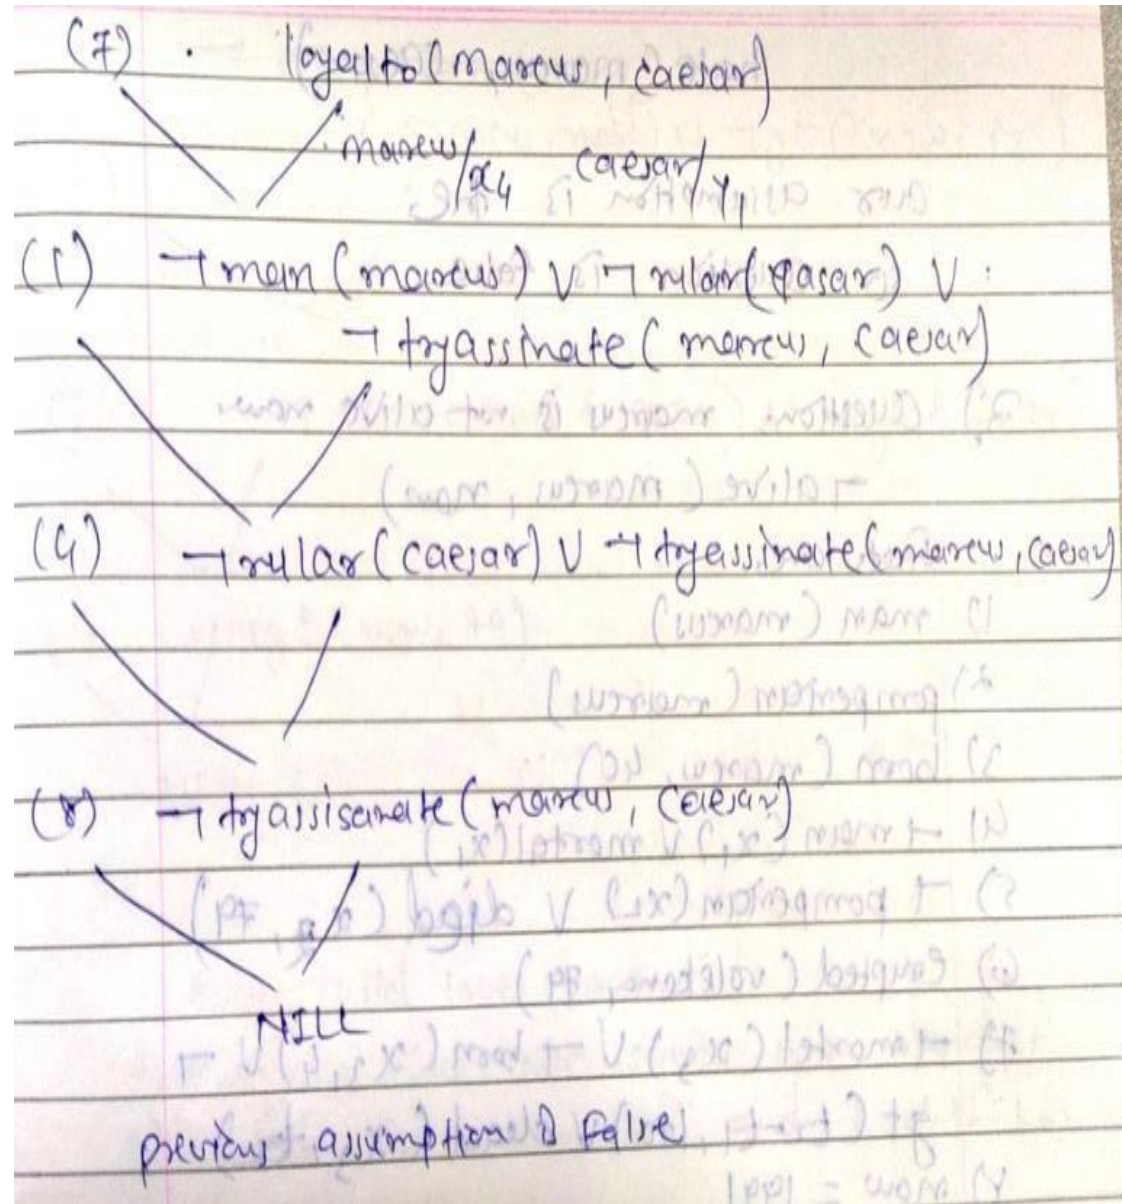 (7) . loyalto (marcus, caesar)
marcus/x4 caesar/y1
(1) ¬man (marcus) V ¬rular(casar) V
¬tryassinate (marcus, caesar)
(4) ¬rular (caesar) V ¬tryassinate (marcus, caesar)
(8) ¬tryassisanate (marcus, caesar)
NILL
previous assumption is false